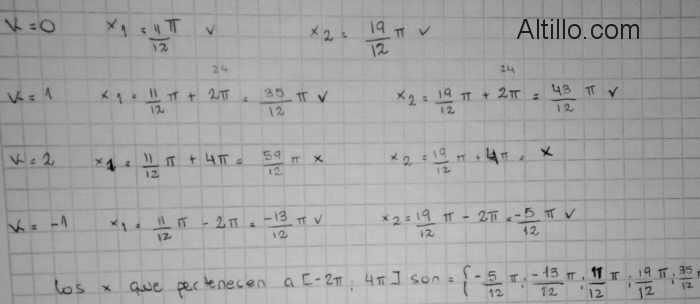 Altillo.com
K=0 x₁ = 11/12 π v x₂ = 19/12 π v
24 24
K=1 x₁ = 11/12 π + 2π = 35/12 π v x₂ = 19/12 π + 2π = 43/12 π v
K=2 x₁ = 11/12 π + 4π = 59/12 π x x₂ = 19/12 π + 4π = x
K=-1 x₁ = 11/12 π - 2π = -13/12 π v x₂ = 19/12 π - 2π = -5/12 π v
Los x que pertenecen a [-2π; 4π] son = {-5/12 π; -13/12 π; 11/12 π; 19/12 π; 35/12 π